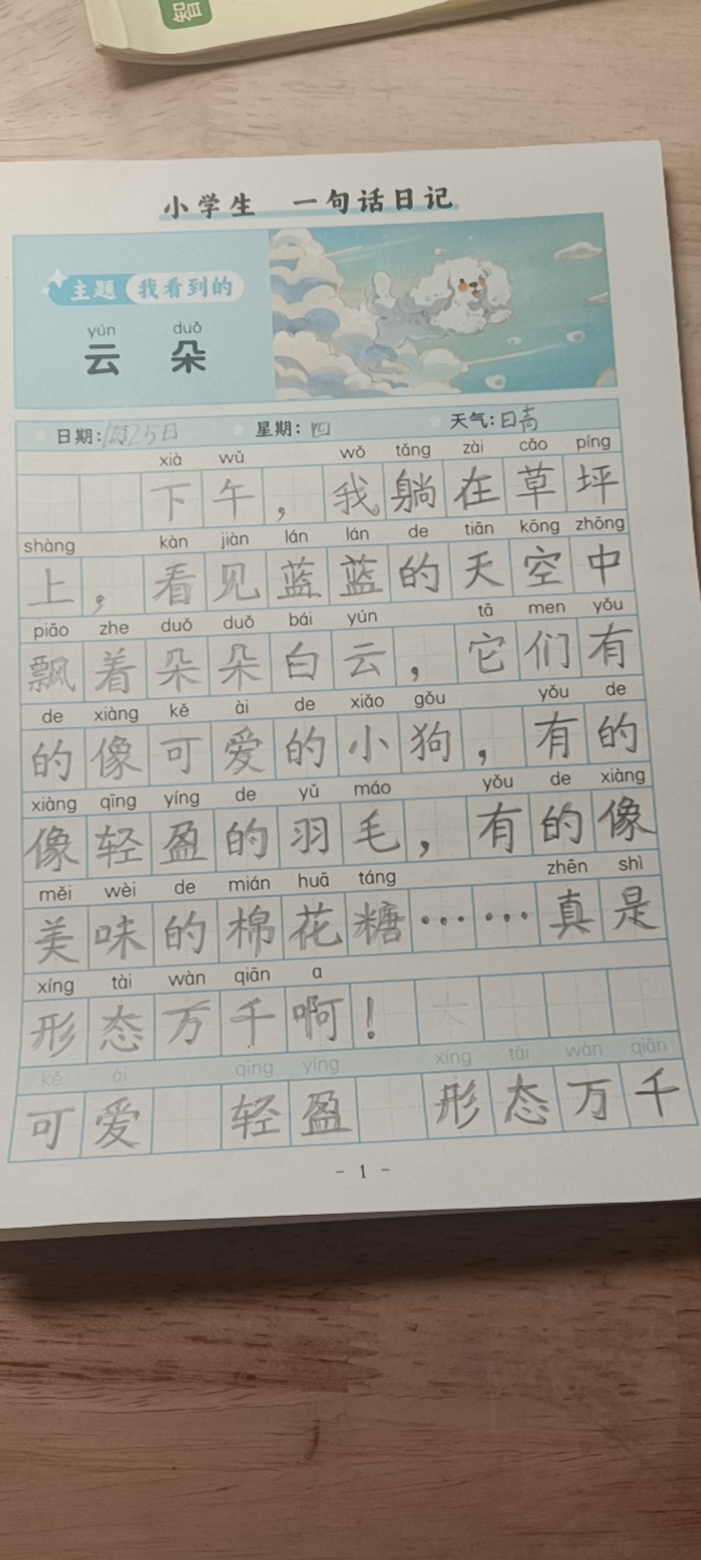 智
小学生 一句话日记
主题 我看到的
yún duǒ
云 朵
日期: 25日 星期: 四 天气: 晴
xià wǔ wǒ tǎng zài cǎo píng
下午，我躺在草坪
shàng kàn jiàn lán lán de tiān kōng zhōng
上，看见蓝蓝的天空中
piāo zhe duǒ duǒ bái yún tā men yǒu
飘着朵朵白云，它们有
de xiàng kě ài de xiǎo gǒu yǒu de
的像可爱的小狗，有的
xiàng qīng yíng de yǔ máo yǒu de xiàng
像轻盈的羽毛，有的像
měi wèi de mián huā táng zhēn shì
美味的棉花糖……真是
xíng tài wàn qiān a
形态万千啊！
kě ài qīng yíng xíng tài wàn qiān
可爱 轻盈 形态万千
- 1 -